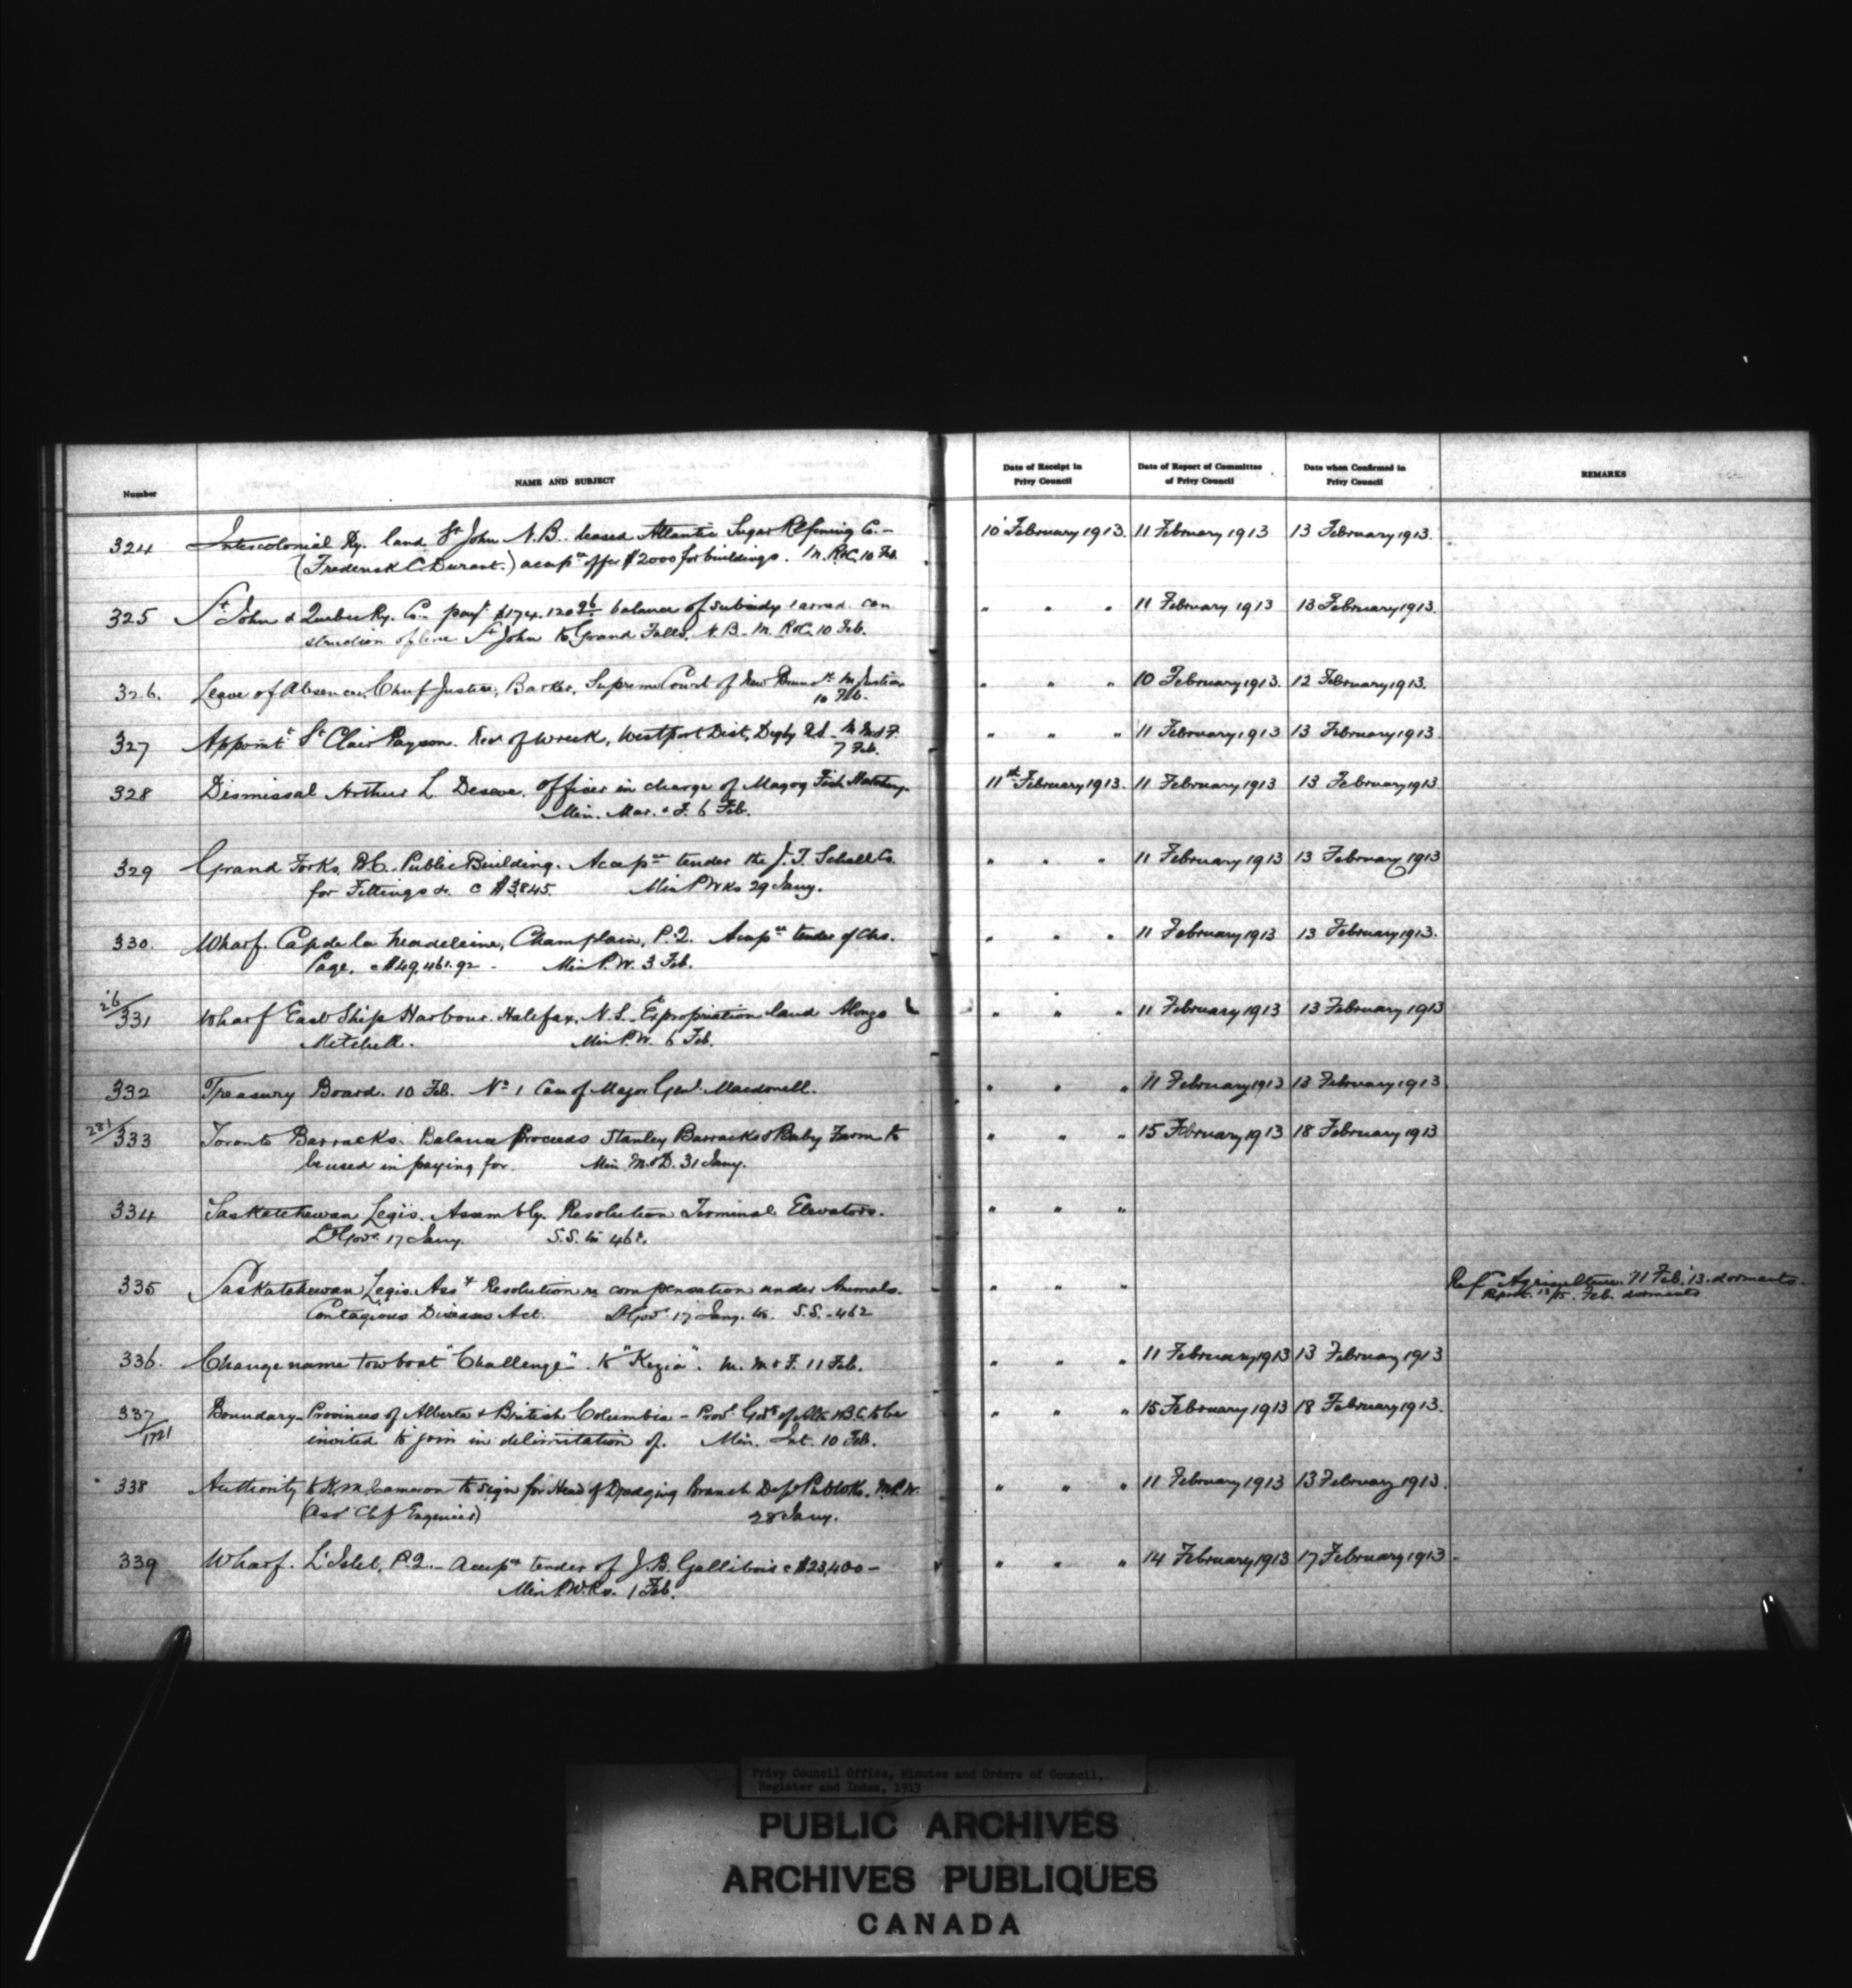 Number NAME AND SUBJECT Date of Receipt in Privy Council Date of Report of Committee of Privy Council Date when Confirmed in Privy Council REMARKS
324 Intercolonial Ry. land St John N.B. leased Atlantic Sugar Refining Co. – 10 February 1913. 11 February 1913 13 February 1913.
(Frederick C. Durant.) accepce offer $2000 for buildings. M. R&C. 10 Feb.
325 St John & Quebec Ry. Co. payt $174,120 96 balance of subsidy earned con " " " 11 February 1913 13 February 1913.
struction of line St John to Grand Falls, N.B. M. R&C. 10 Feb.
326. Leave of Absence. Chief Justice, Barker, Supreme Court of New Brunsk. M Justice " " " 10 February 1913. 12 February 1913.
10 Feb.
327 Appointt St Clair Payson. Recr of Wreck, Westport Dist, Digby M. M&F. " " " 11 February 1913 13 February 1913.
7 Feb.
328 Dismissal Arthur L. officer in charge of Magog Fish Hatchery. 11th February 1913. 11 February 1913 13 February 1913
Min. Mar. & F. 6 Feb.
329 Grand Forks, B.C. Public Building. Accepce tender the J. T. Schell Co. " " " 11 February 1913 13 February 1913
for Fittings &c. @ $3,845. Min P Wks 29 Jany.
330. Wharf. Cap de la Madeleine, Champlain, P.Q. Accepce tender of Chs. " " " 11 February 1913 13 February 1913.
Page, @ $49,461.92 – Min P.W. 3 Feb.
26/331 Wharf East Ship Harbour. Halifax, N.S. Expropriation land Alonzo " " " 11 February 1913 13 February 1913
Mitchell. Min P.W. 6 Feb.
332 Treasury Board. 10 Feb. No 1 Case of Major Genl. Macdonell. " " " 11 February 1913 13 February 1913
281/333 Toronto Barracks. Balance Proceeds Stanley Barracks & Baby Farm to " " " 15 February 1913 18 February 1913
be used in paying for. Min. M.&D. 31 Jany.
334 Saskatchewan Legis. Assembly. Resolution Terminal Elevators. " " "
Lt Govr. 17 Jany. S.S.
335 Saskatchewan Legis. Assy Resolution re compensation under Animals. " " " Ref Agriculture 11 Feb. '13. dormants.
Contagious Diseases Act. Lt Govr 17 Jany. S.S. 462 Feb. dormants
336. Change name tow boat "Challenge". to "Kezia". M. M & F. 11 Feb. " " " 11 February 1913 13 February 1913
337/1721 Boundary – Provinces of Alberta & British Columbia – Provl Govts of Alta & B.C. to be " " " 15 February 1913 18 February 1913.
invited to join in delimitation of. Min. Int. 10 Feb.
338 Authority to K.M. Cameron to sign for Head of Dredging Branch Dept Pub Wks. M.P.W. " " " 11 February 1913 13 February 1913.
(Asst Chf Engineer) 28 Jany.
339 Wharf. L'Islet, P.Q. – Accepce tender of J. B. Gallibois @ $23,400 – " " " 14 February 1913 17 February 1913.
Min P.Wks. 1 Feb.
Privy Council Office, Minutes and Orders of Council,
Register and Index, 1913
PUBLIC ARCHIVES
ARCHIVES PUBLIQUES
CANADA